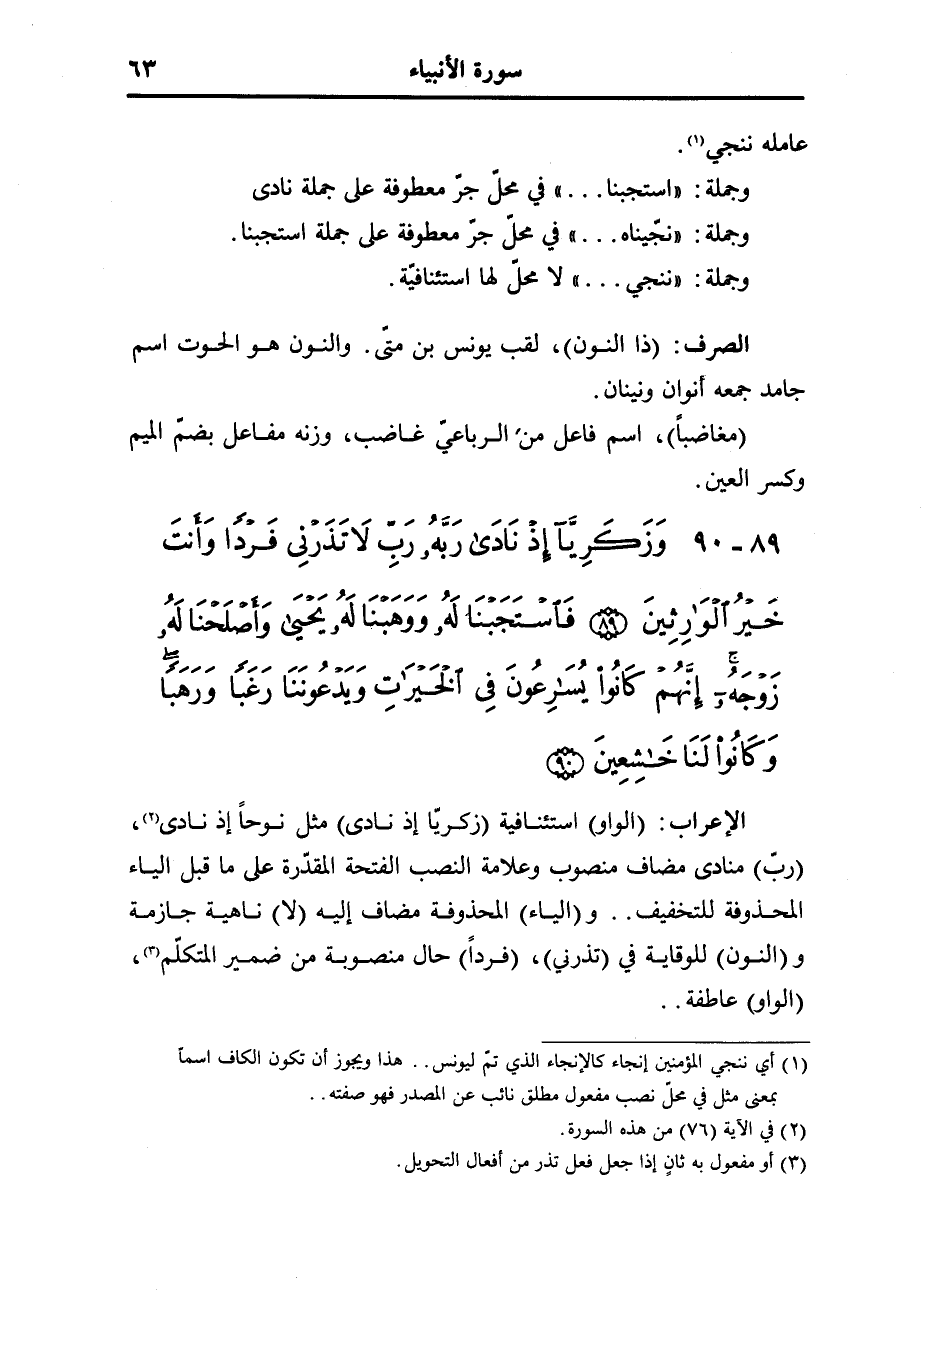 سورة الأنبياء ٦٣
عامله ننجي(١).
وجملة: «استجبنا...» في محلّ جرّ معطوفة على جملة نادى
وجملة: «نجّيناه...» في محلّ جرّ معطوفة على جملة استجبنا.
وجملة: «ننجي...» لا محلّ لها استئنافيّة.
الصرف: (ذا النون)، لقب يونس بن متّى. والنون هو الحوت اسم
جامد جمعه أنوان ونينان.
(مغاضباً)، اسم فاعل من الرباعيّ غاضب، وزنه مفاعل بضمّ الميم
وكسر العين.
٨٩ - ٩٠ وَزَكَرِيَّآ إِذْ نَادَىٰ رَبَّهُۥ رَبِّ لَا تَذَرْنِى فَرْدًا وَأَنتَ
خَيْرُ ٱلْوَٰرِثِينَ ﴿٨٩﴾ فَٱسْتَجَبْنَا لَهُۥ وَوَهَبْنَا لَهُۥ يَحْيَىٰ وَأَصْلَحْنَا لَهُۥ
زَوْجَهُۥٓ ۚ إِنَّهُمْ كَانُوا۟ يُسَٰرِعُونَ فِى ٱلْخَيْرَٰتِ وَيَدْعُونَنَا رَغَبًا وَرَهَبًا ۖ
وَكَانُوا۟ لَنَا خَٰشِعِينَ ﴿٩٠﴾
الإعراب: (الواو) استئنافية (زكريّا إذ نادى) مثل نوحاً إذ نادى(٢)،
(ربّ) منادى مضاف منصوب وعلامة النصب الفتحة المقدّرة على ما قبل الياء
المحذوفة للتخفيف.. و (الياء) المحذوفة مضاف إليه (لا) ناهية جازمة
و (النون) للوقاية في (تذرني)، (فرداً) حال منصوبة من ضمير المتكلّم(٣)،
(الواو) عاطفة..
(١) أي ننجي المؤمنين إنجاء كالإنجاء الذي تمّ ليونس.. هذا ويجوز أن تكون الكاف اسماً
بمعنى مثل في محلّ نصب مفعول مطلق نائب عن المصدر فهو صفته..
(٢) في الآية (٧٦) من هذه السورة.
(٣) أو مفعول به ثانٍ إذا جعل فعل تذر من أفعال التحويل.